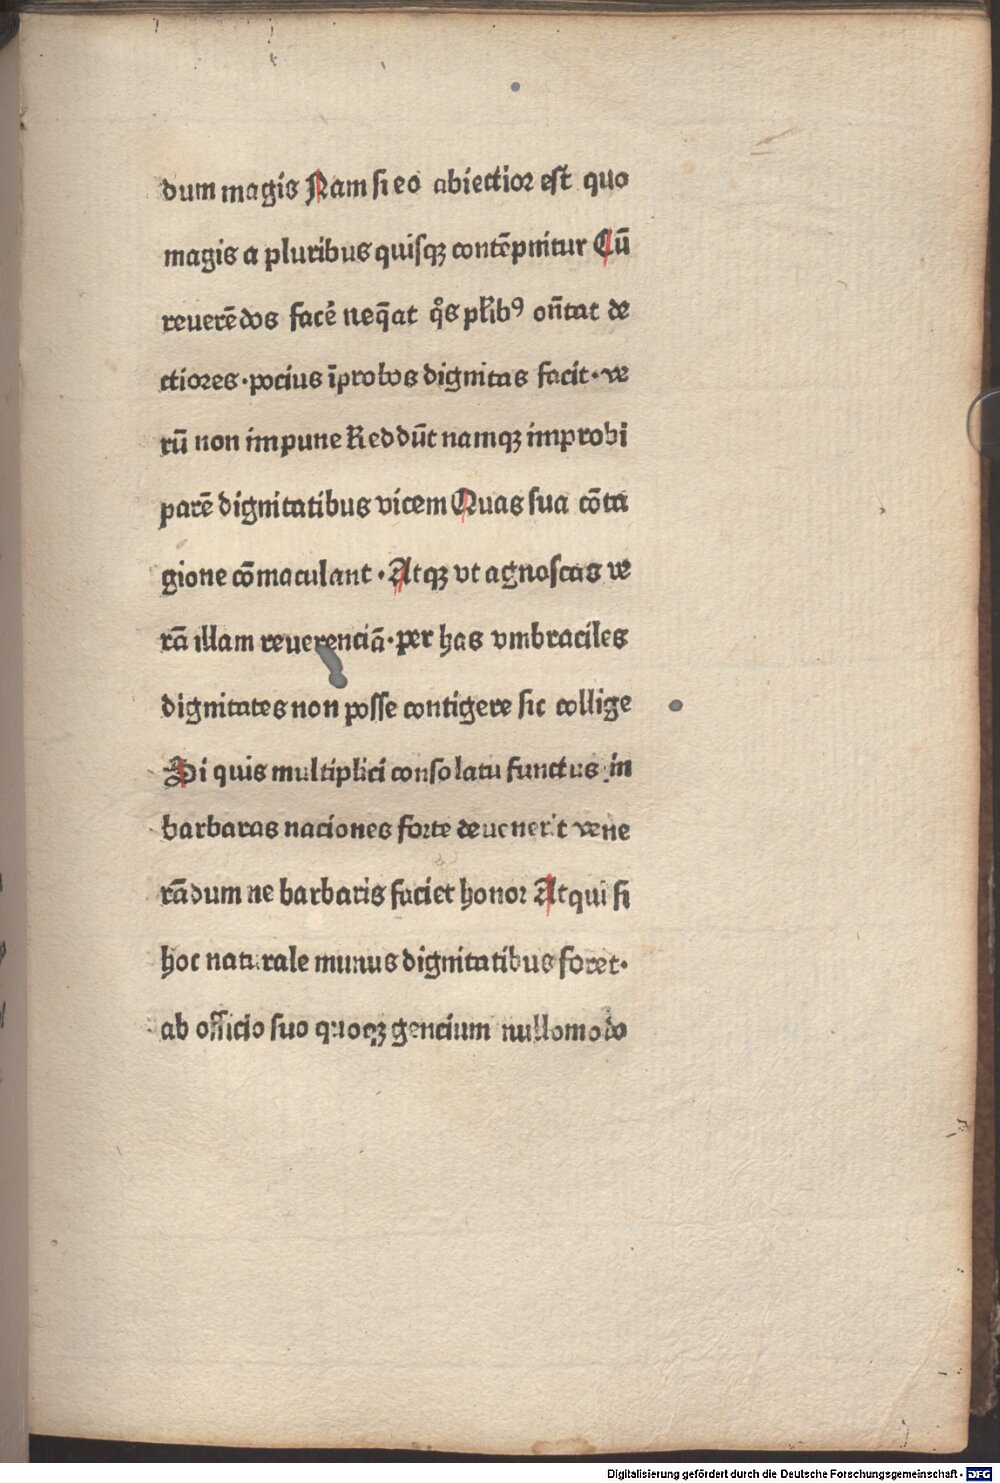 dum magis Nam si eo abiectior est quo
magis a pluribus quisqꝫ contēpnitur Cū
reuerēdos facē neq̄at q̊s pl̄ibꝰ oñtat de
ctiores·pocius īprobos dignitas facit·ve
rū non impune Reddūt namqꝫ improbi
parē dignitatibus vicem Quas sua cōta
gione cōmaculant·Atqꝫ vt agnoscas ve
rā illam reuerenciā·per has vmbraciles
dignitates non posse contigere sic collige
Si quis multiplici consolatu functus in
barbaras naciones forte deuenerit vene
rādum ne barbaris faciet honor Atqui si
hoc naturale munus dignitatibus foret·
ab officio suo quoqꝫ gencium nullomodo
Digitalisierung gefördert durch die Deutsche Forschungsgemeinschaft - DFG